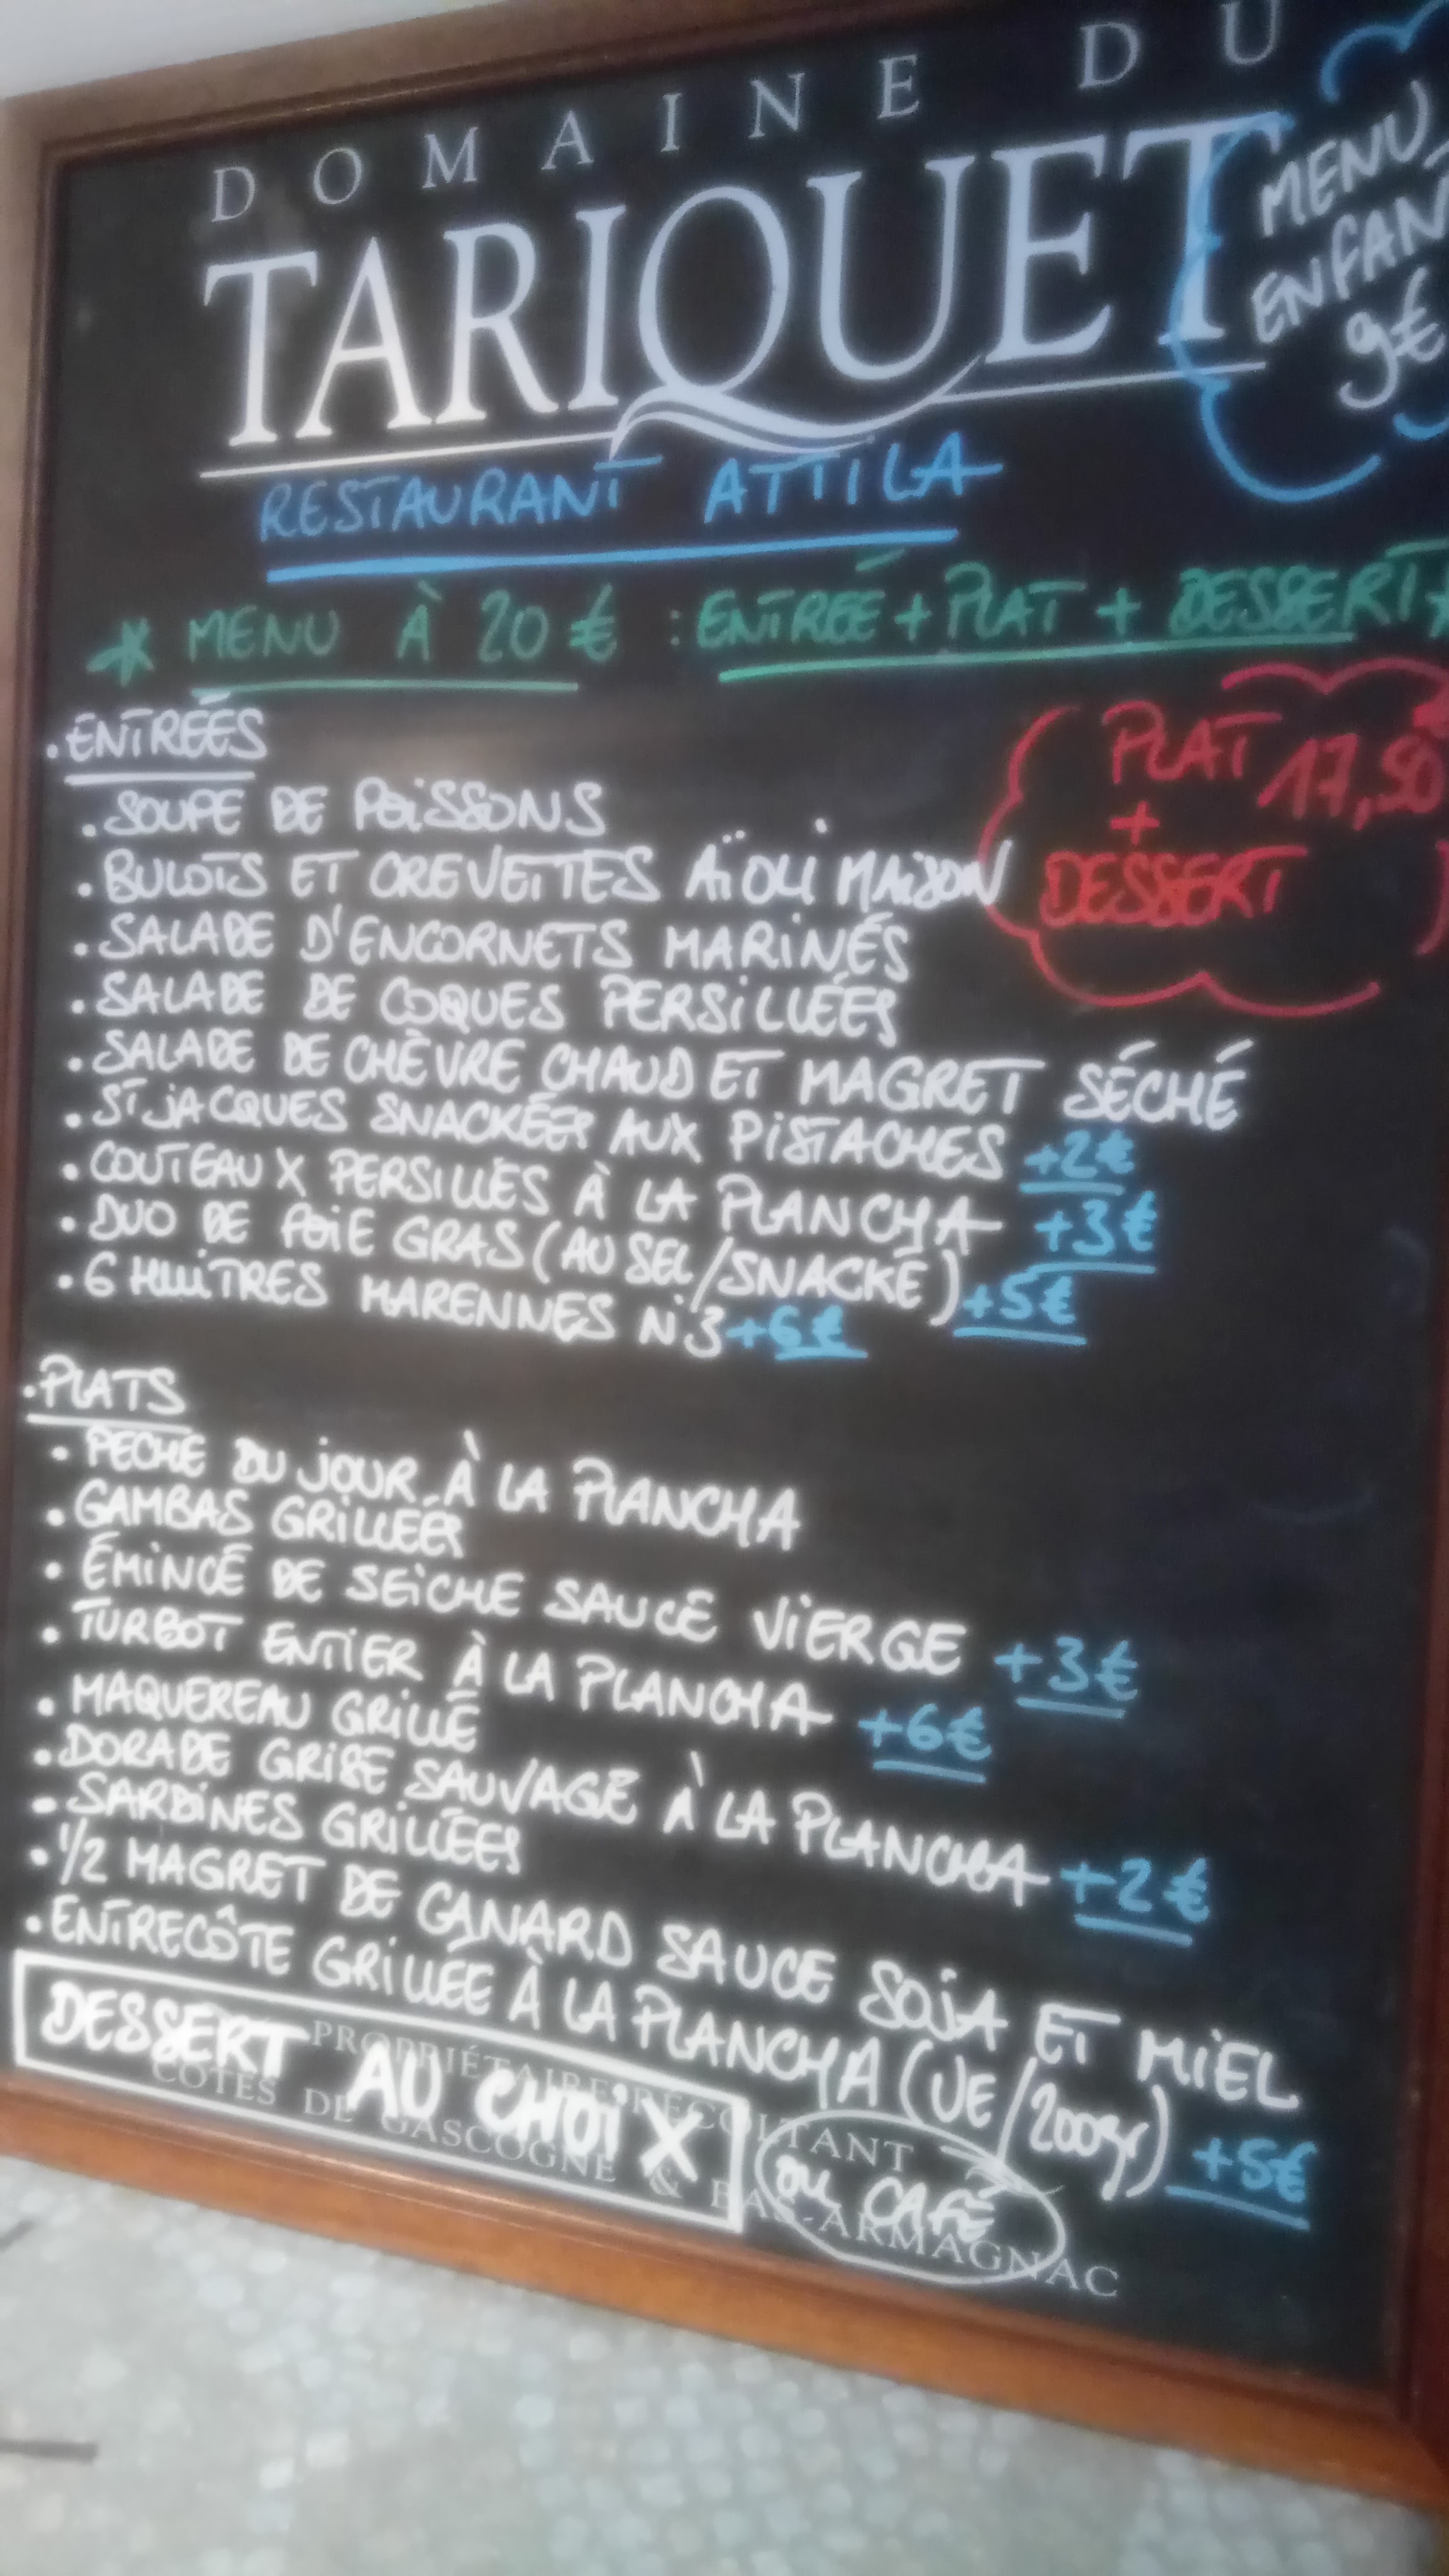 DOMAINE DU
TARIQUET
MENU
ENFAN
9€
RESTAURANT ATTILA
* MENU À 20 € : ENTRÉE + PLAT + DESSERT *
PLAT 17,50
+
DESSERT
. ENTRÉES
. SOUPE DE POISSONS
. BULOTS ET CREVETTES AÏOLI MAISON
. SALADE D'ENCORNETS MARINÉS
. SALADE DE COQUES PERSILLÉES
. SALADE DE CHÈVRE CHAUD ET MAGRET SÉCHÉ
. ST JACQUES SNACKÉES AUX PISTACHES +2€
. COUTEAUX PERSILLÉS À LA PLANCHA +3€
. DUO DE FOIE GRAS (AU SEL/SNACKÉ) +5€
. 6 HUITRES MARENNES N°3 +6€
. PLATS
. PECHE DU JOUR À LA PLANCHA
. GAMBAS GRILLÉES
. ÉMINCÉ DE SEICHE SAUCE VIERGE +3€
. TURBOT ENTIER À LA PLANCHA +6€
. MAQUEREAU GRILLÉ
. DORADE GRISE SAUVAGE À LA PLANCHA +2€
. SARDINES GRILLÉES
. 1/2 MAGRET DE CANARD SAUCE SOJA ET MIEL
. ENTRECÔTE GRILLÉE À LA PLANCHA (UE/200gr) +5€
DESSERT AU CHOIX
OU CAFÉ
PROPRIÉTAIRE RÉCOLTANT
CÔTES DE GASCOGNE & BAS-ARMAGNAC